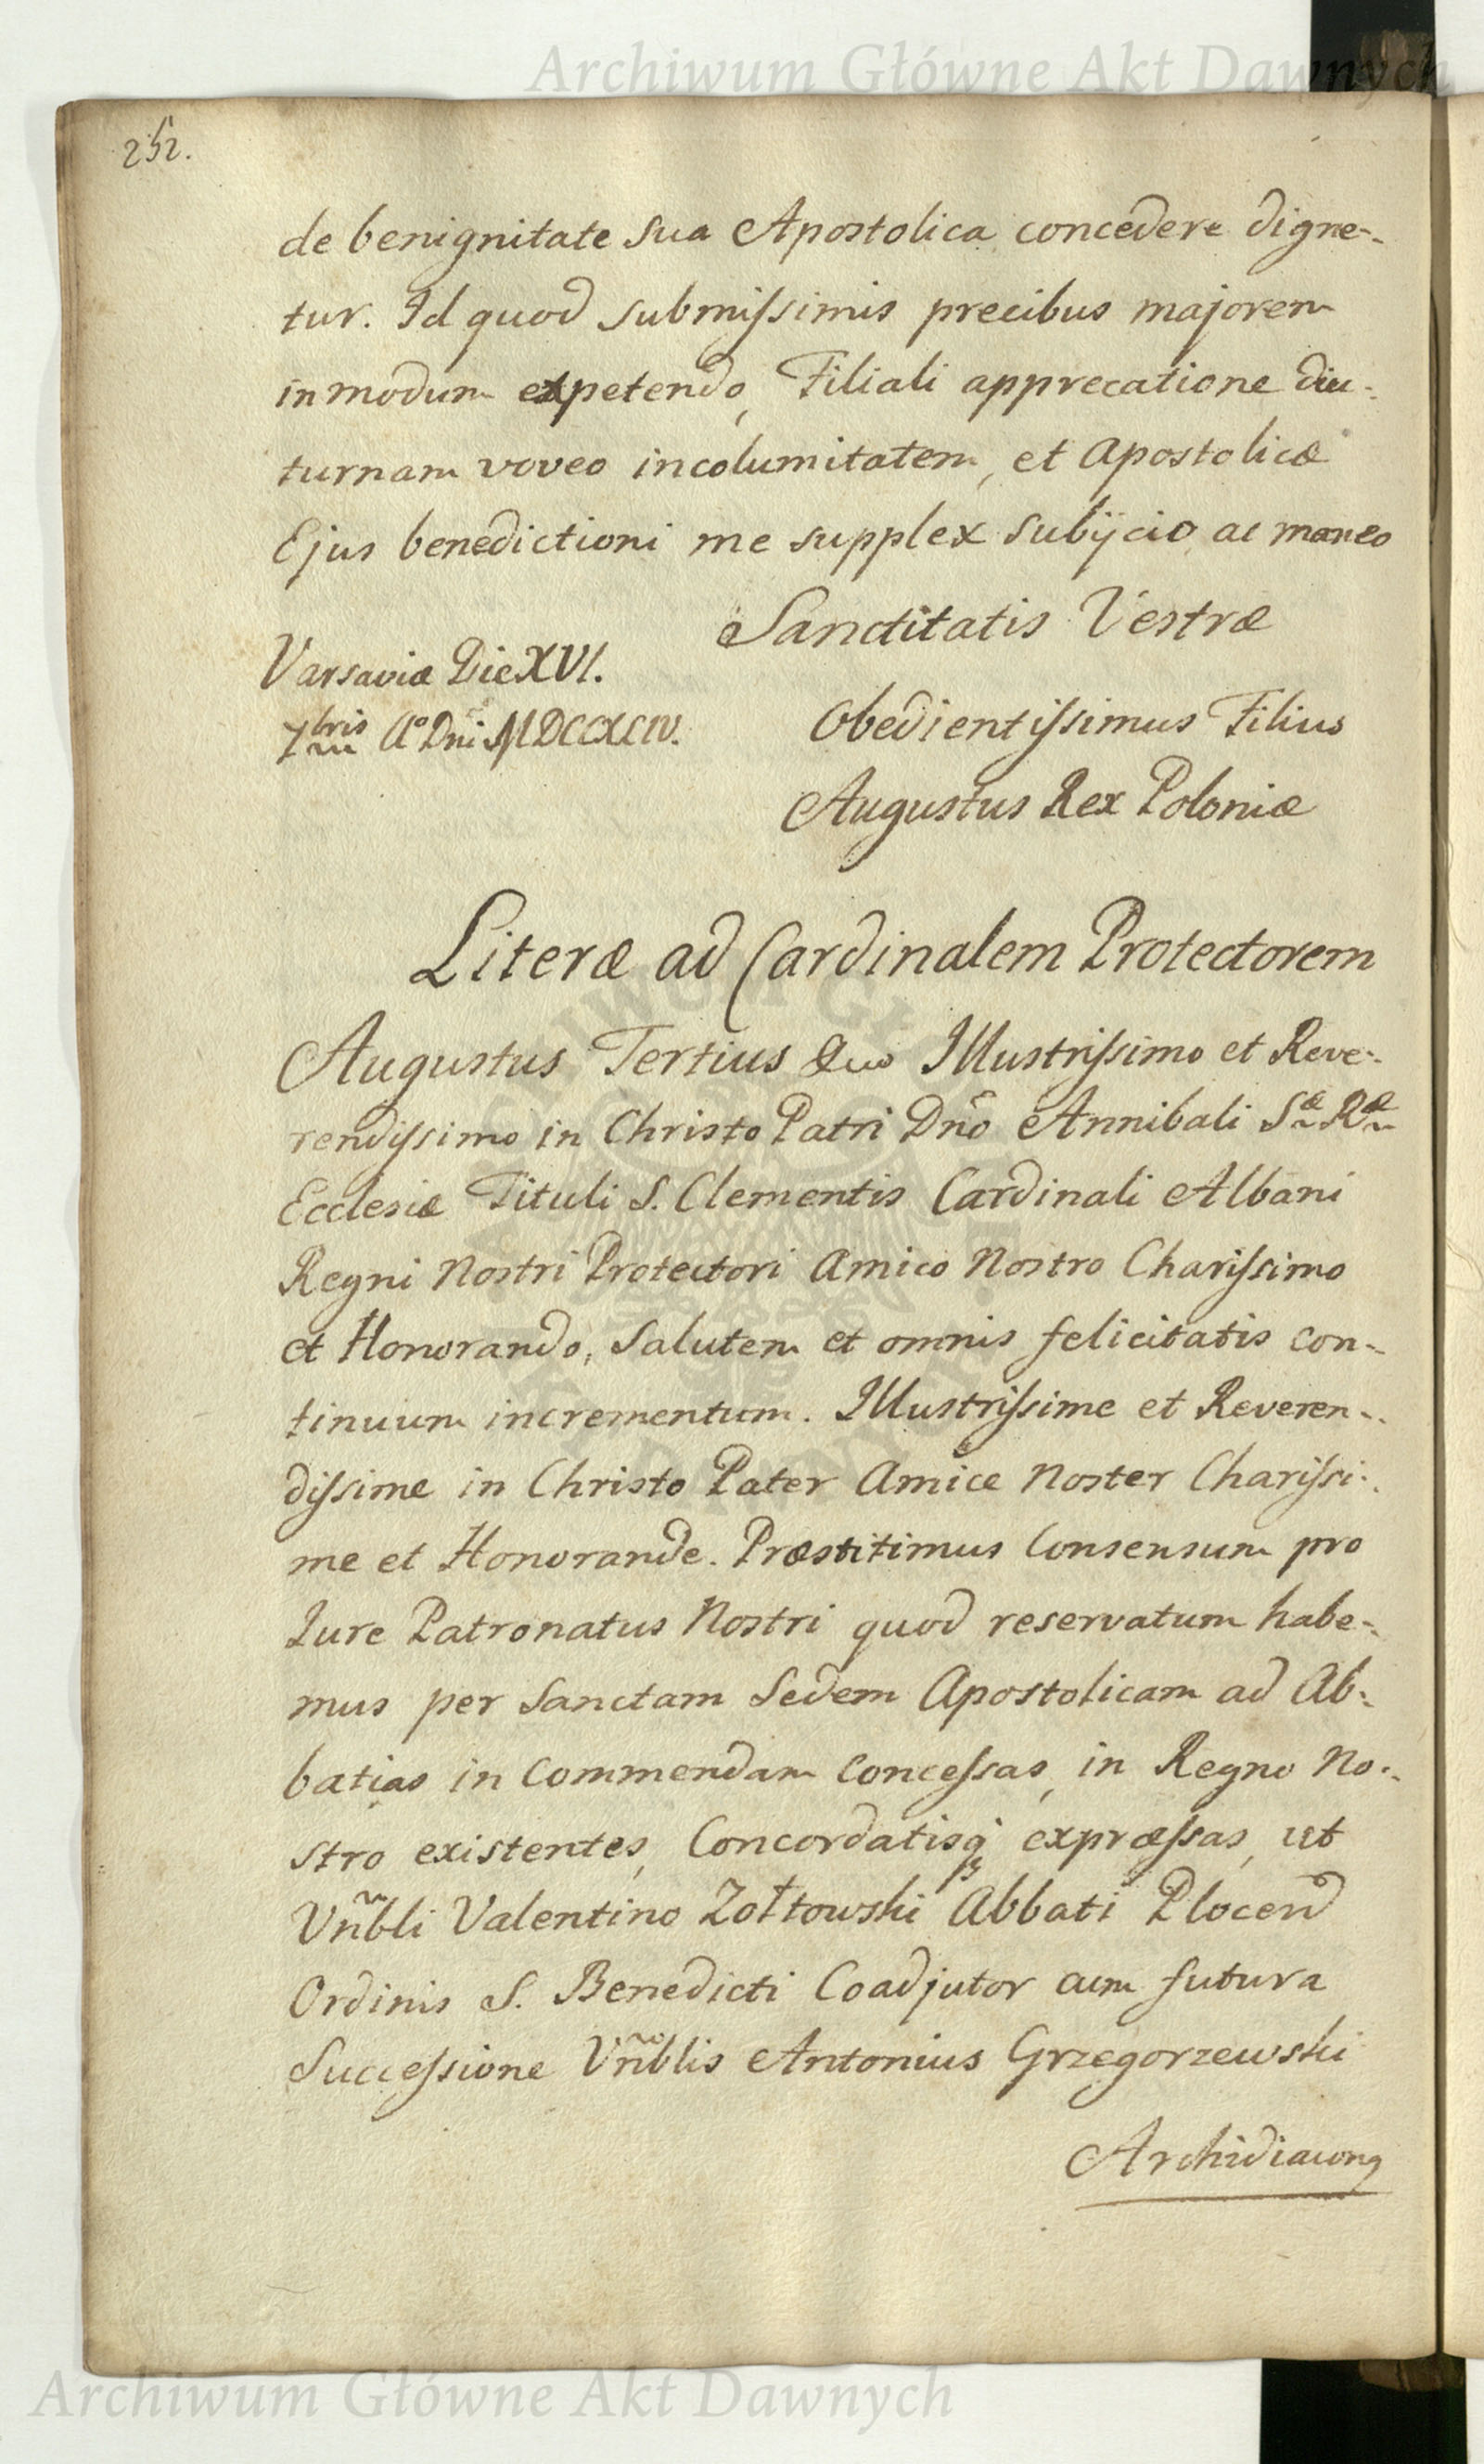 Archiwum Główne Akt Dawnych
252.
de benignitate sua Apostolica concedere digne-
tur. Id quod submissimis precibus majorem
in modum expetendo, Filiali apprecatione diu-
turnam voveo incolumitatem, et Apostolicæ
Ejus benedictioni me supplex subijcio, ac maneo
Sanctitatis Vestræ
Varsaviæ Die XVI.
7bris Aº Dni MDCCXLIV.
Obedientissimus Filius
Augustus Rex Poloniæ
Literæ ad Cardinalem Protectorem
Augustus Tertius &us Illustrissimo et Reve-
rendissimo in Christo Patri Dño Annibali Sæ Ræ
Ecclesiæ Tituli S. Clementis Cardinali Albani
Regni Nostri Protectori Amico Nostro Charissimo
et Honorando, Salutem et omnis felicitatis con-
tinuum incrementum. Illustrissime et Reveren-
dissime in Christo Pater Amice Noster Charissi-
me et Honorande. Præstitimus Consensum pro
Jure Patronatus Nostri quod reservatum habe-
mus per Sanctam Sedem Apostolicam ad Ab-
batias in Commendam Concessas, in Regno No-
stro existentes, Concordatisq; expræssas, ut
Vñbli Valentino Zołtowski Abbati Plocen
Ordinis S. Benedicti Coadjutor cum futura
Successione Vñblis Antonius Grzegorzewski
Archidiaconq
Archiwum Główne Akt Dawnych